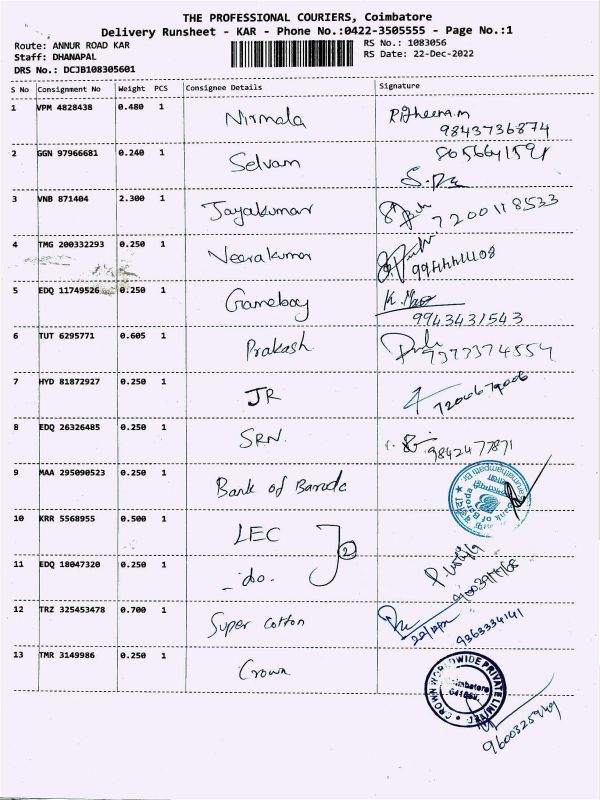 THE PROFESSIONAL COURIERS, Coimbatore
Delivery Runsheet - KAR - Phone No.:0422-3505555 - Page No.:1
Route: ANNUR ROAD KAR
Staff: DHANAPAL
DRS No.: DCJB108305601
RS No.: 1083056
RS Date: 22-Dec-2022
S No Consignment No Weight PCS Consignee Details Signature
1 VPM 4828438 0.480 1 Nirmala
9843736874
2 GGN 97966681 0.240 1 Selvam 8056641591
3 VNB 871404 2.300 1 Jayakumar 7200118533
4 TMG 200332293 0.250 1 Neerakumar
5 EDQ 11749526 0.250 1 Gameboy
9943431543
6 TUT 6295771 0.605 1 Prakash 7373374554
7 HYD 81872927 0.250 1 JR 7200679006
8 EDQ 26326485 0.250 1 SRN. 9842477871
9 MAA 295090523 0.250 1 Bank of Baroda Bank of Baroda
10 KRR 5568955 0.500 1 LEC
2
11 EDQ 18047320 0.250 1 -do.
12 TRZ 325453478 0.700 1 Super cotton 9363334141
13 TMR 3149986 0.250 1 Crown
CROWN WORLDWIDE PRIVATE LIMITED
Coimbatore